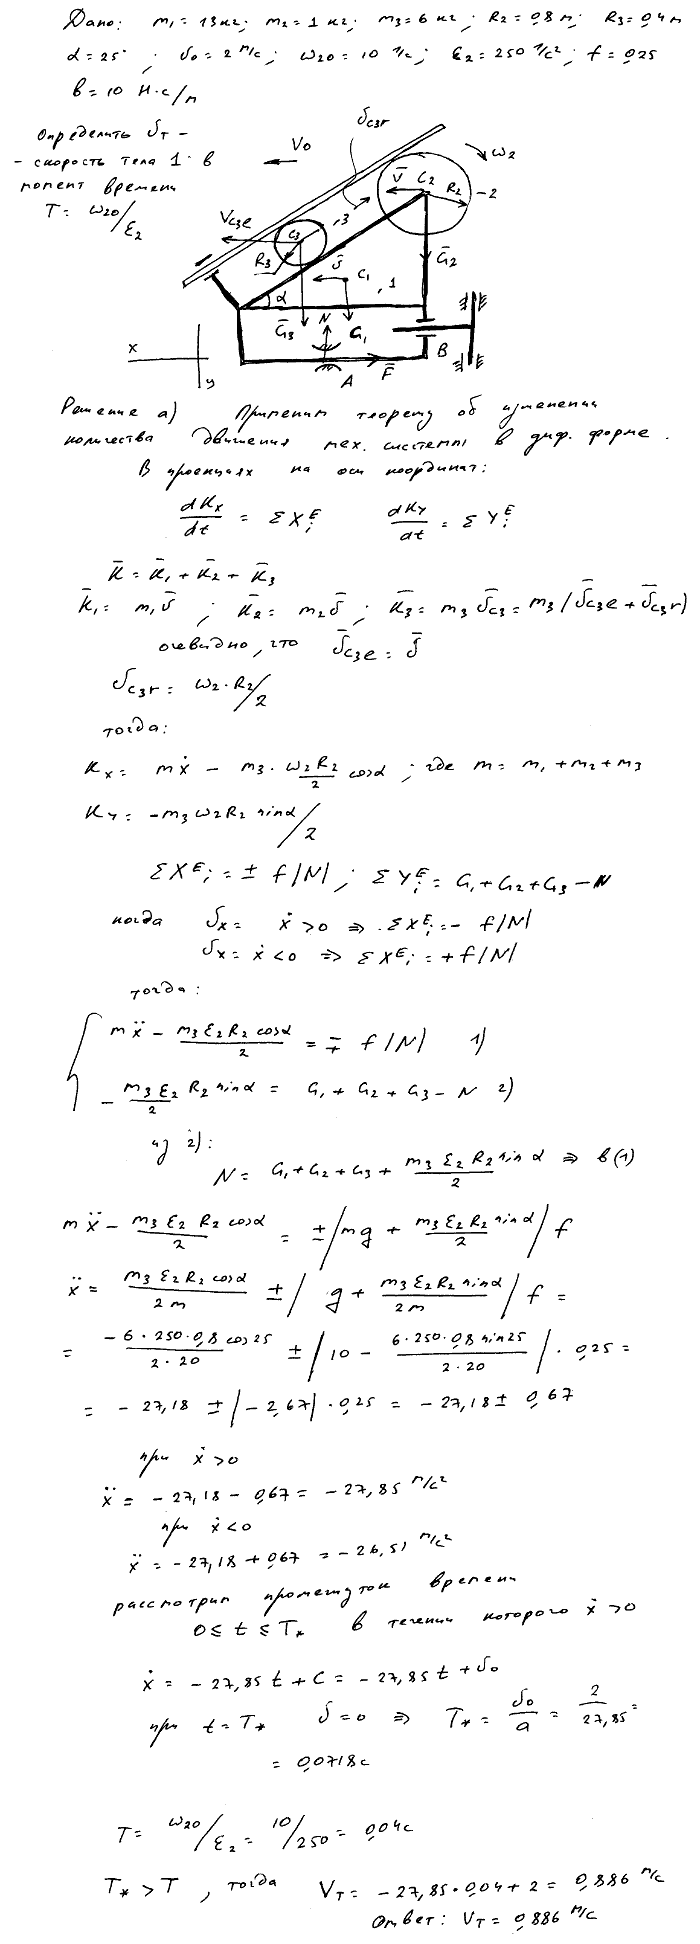 Дано: m₁ = 13 кг; m₂ = 1 кг; m₃ = 6 кг; R₂ = 0,8 м; R₃ = 0,4 м
α = 25°; υ₀ = 2 м/с; ω₂₀ = 10 1/с; ε₂ = 250 1/с²; f = 0,25
b = 10 Н·с/м
Определить υт –
– скорость тела 1 в
момент времени
T = ω₂₀/ε₂
V₀
υc₃r
ω₂
V̄ C₂ R₂ – 2
Vc₃e
C₃
3
R₃
ῡ C₁, 1
Ḡ₂
α
Ḡ₃ N G₁
B
x
y
A F̄
Решение а) Применим теорему об изменении
количества движения мех. системы в диф. форме.
В проекциях на оси координат:
dKx/dt = ΣXᵢᴱ dKy/dt = ΣYᵢᴱ
K̄ = K̄₁ + K̄₂ + K̄₃
K̄₁ = m₁ῡ; K̄₂ = m₂ῡ; K̄₃ = m₃ῡc₃ = m₃(ῡc₃e + ῡc₃r)
очевидно, что ῡc₃e = ῡ
υc₃r = ω₂·R₂/2
тогда:
Kx = mẋ – m₃· ω₂R₂/2 cosα; где m = m₁ + m₂ + m₃
Ky = –m₃ω₂R₂ sinα/2
ΣXᴱᵢ = ± f|N|; ΣYᵢᴱ = G₁ + G₂ + G₃ – N
когда υx = ẋ > 0 ⇒ ΣXᴱᵢ = – f|N|
υx = ẋ < 0 ⇒ ΣXᴱᵢ = + f|N|
тогда:
mẍ – m₃ε₂R₂ cosα/2 = ∓ f|N| 1)
– m₃ε₂/2 R₂ sinα = G₁ + G₂ + G₃ – N 2)
из 2):
N = G₁ + G₂ + G₃ + m₃ε₂R₂ sinα/2 ⇒ в (1)
mẍ – m₃ε₂R₂ cosα/2 = ±|mg + m₃ε₂R₂ sinα/2| f
ẍ = m₃ε₂R₂ cosα/2m ± |g + m₃ε₂R₂ sinα/2m| f =
= –6·250·0,8 cos25/2·20 ± |10 – 6·250·0,8 sin25/2·20| · 0,25 =
= –27,18 ± |–2,67|·0,25 = –27,18 ± 0,67
при ẋ > 0
ẍ = –27,18 – 0,67 = –27,85 м/с²
при ẋ < 0
ẍ = –27,18 + 0,67 = –26,51 м/с²
рассмотрим промежуток времени
0 ≤ t ≤ T* в течении которого ẋ > 0
ẋ = –27,85 t + C = –27,85 t + υ₀
при t = T* υ = 0 ⇒ T* = υ₀/a = 2/27,85 =
= 0,0718 с
T = ω₂₀/ε₂ = 10/250 = 0,04 с
T* > T, тогда Vт = –27,85·0,04 + 2 = 0,886 м/с
Ответ: Vт = 0,886 м/с